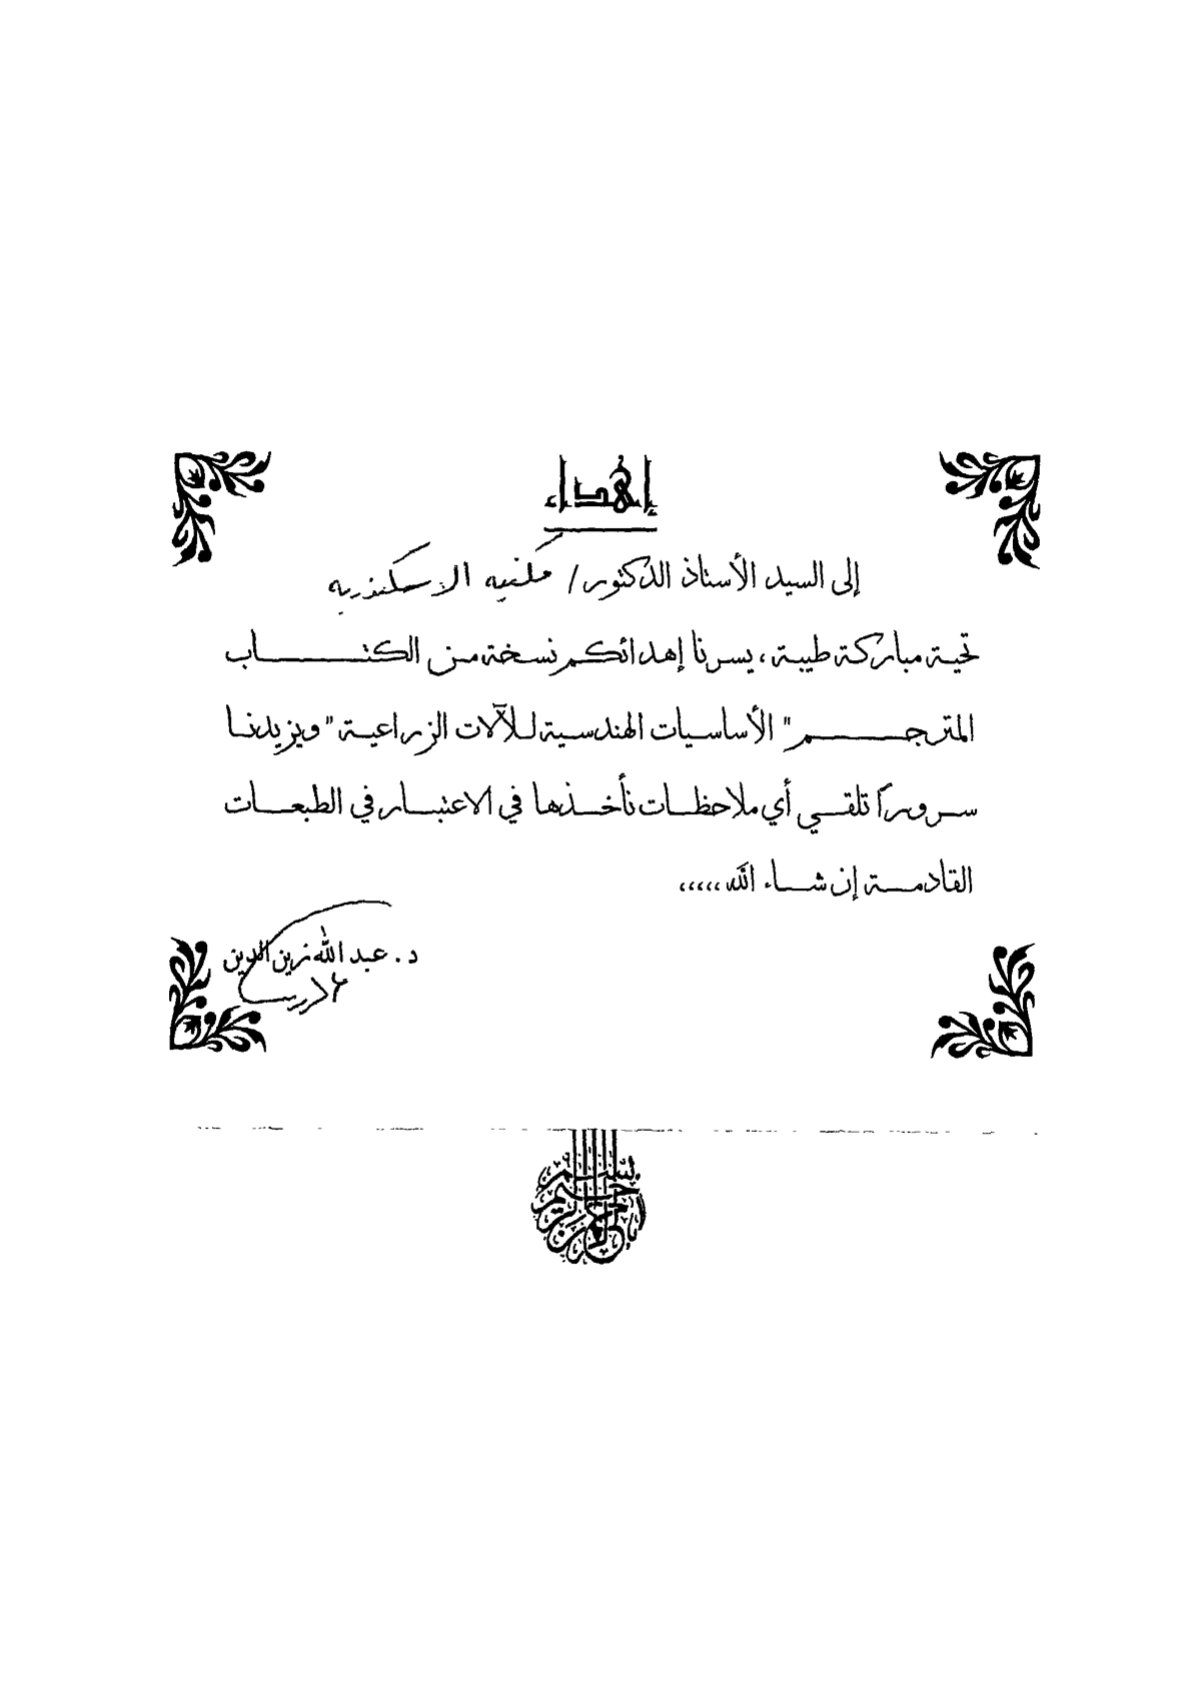 إهداء
إلى السيد الأستاذ الدكتور/ مكتبه الاسكندريه
تحية مباركة طيبة، يسرنا إهدائكم نسخة من الكتاب
المترجم "الأساسيات الهندسية للآلات الزراعية" ويزيدنا
سروراً تلقي أي ملاحظات نأخذها في الاعتبار في الطبعات
القادمة إن شاء الله،،،،،
د. عبد الله زين الدين
بسم الله الرحمن الرحيم